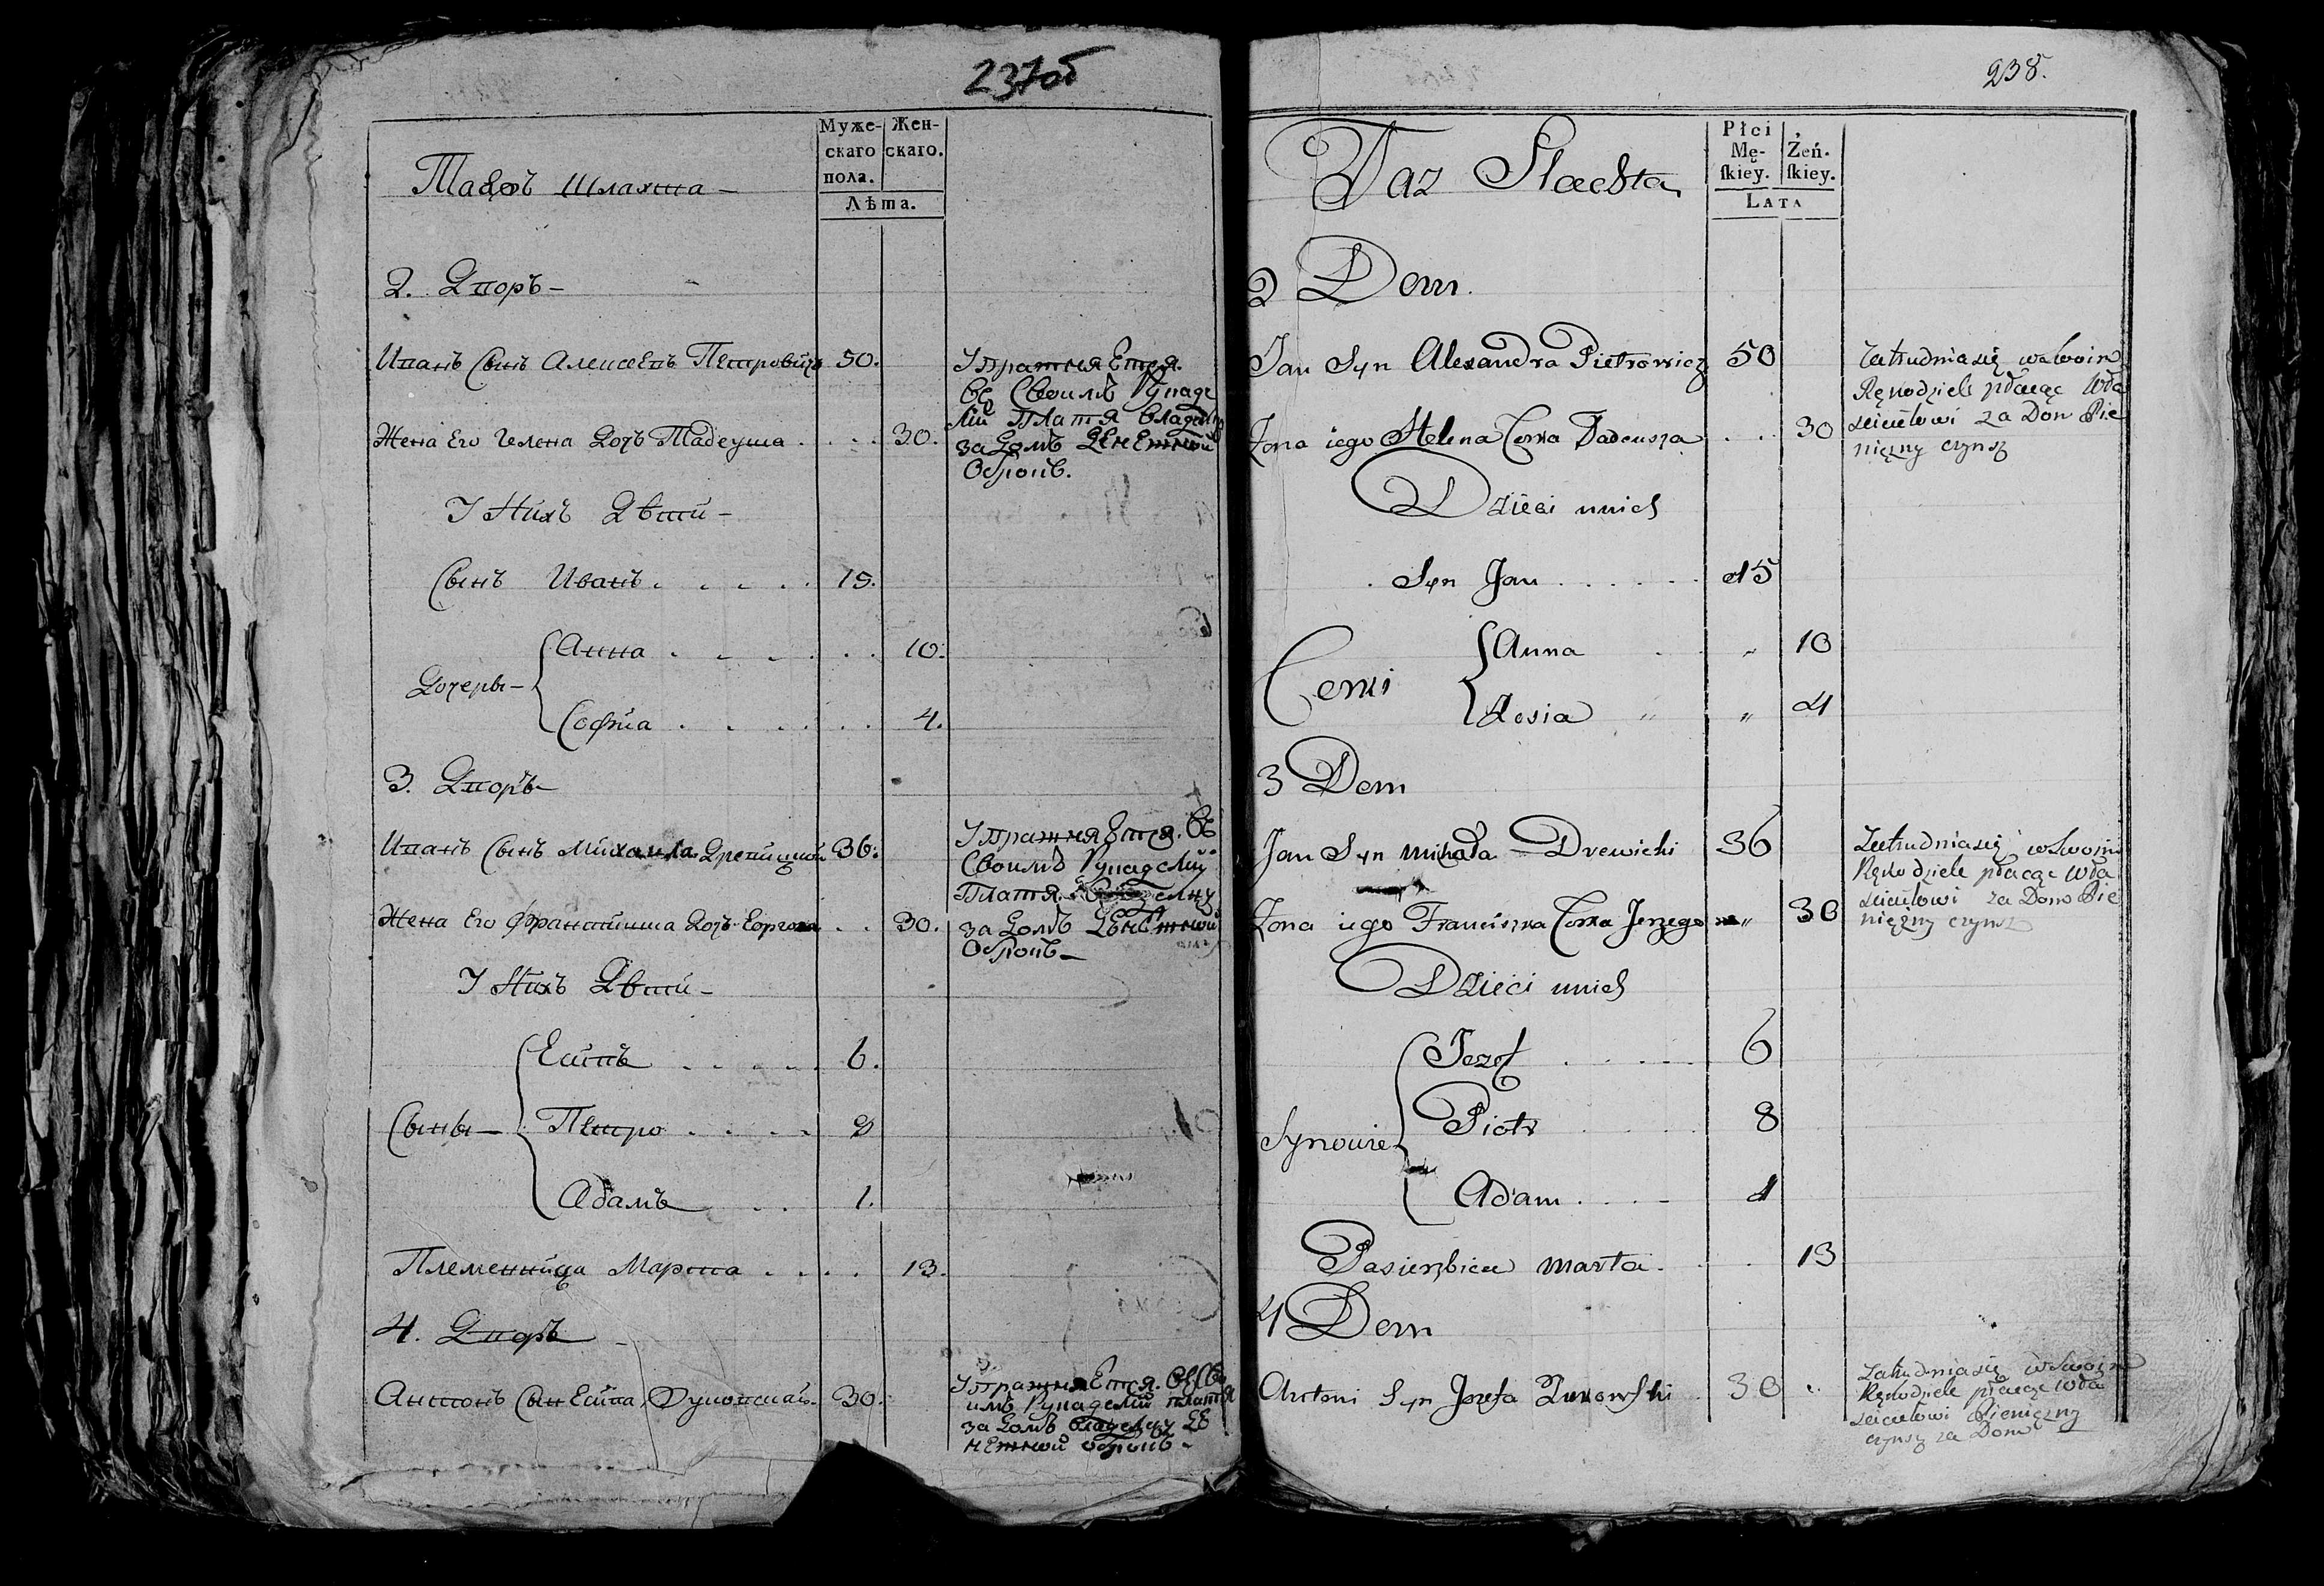 237об
Муже-
скаго
пола.
Жен-
скаго.
Лѣта.
Шляхта
2. Дворъ
Иванъ Сынъ Алексевъ Петровичъ 50.
Упражняется
въ своимъ рукаде
лии платя владелцу
за домъ денежной
оброкъ.
Жена Его Гелена Дочь Тадеуша . . . 30.
У Нихъ Дѣти
Сынъ Иванъ . . . . 15.
Дочеры
Анна . . . . . . 10.
Софiа . . . . . . 4.
3. Дворъ
Иванъ Сынъ Михаила Древицкой 36.
Упражняется въ
своимъ рукаделiй
платя владелцу
за домъ денежной
оброкъ
Жена Его Францишка Дочь Еоргова . . 30.
У Нихъ Дѣти
Сыны
Есипъ . . . . . 6.
Петро . . . . 8
Адамъ . . 1.
Племенница Марта . . . . 13.
4. Дворъ
Антонъ Сын Есипа 30.
Упражняется въ сво
имъ рукаделiй платя
за домъ владелцу де
нежной оброкъ
238.
Płci
Mę-
ſkiey.
Żeń-
ſkiey.
LATA
Taz Slachta
2 Dom
Jan Syn Alexandra Pietrowicz 50
Zatrudnia się w swoim
Rękodziele płacąc Wła
scicielowi za Dom Pie
niężny czynsz
Zona iego Helena Corka Tadeusza . . . 30
Dzieci unich
Syn Jan . . . . . . 15
Corki
Anna " 10
Zosia " " 4
3 Dom
Jan Syn Michała Drewicki 36
Zatrudnia się w swoim
Rękodziele płacąc Wła
scicielowi za Dom Pie
niężny czynsz
Zona iego Franciszka Corka Jerzego " 30
Dzieci unich
Synowie
Jozef . . . . . 6
Piotr . . . . 8
Adam . . . . 1
Pasierzbica Marta . . . 13
4 Dom
Antoni Syn Jozefa Zukowski 30
Zatrudnia się w swoim
Rękodziele płacąc Wła
scicielowi Pieniężny
czynsz za Dom